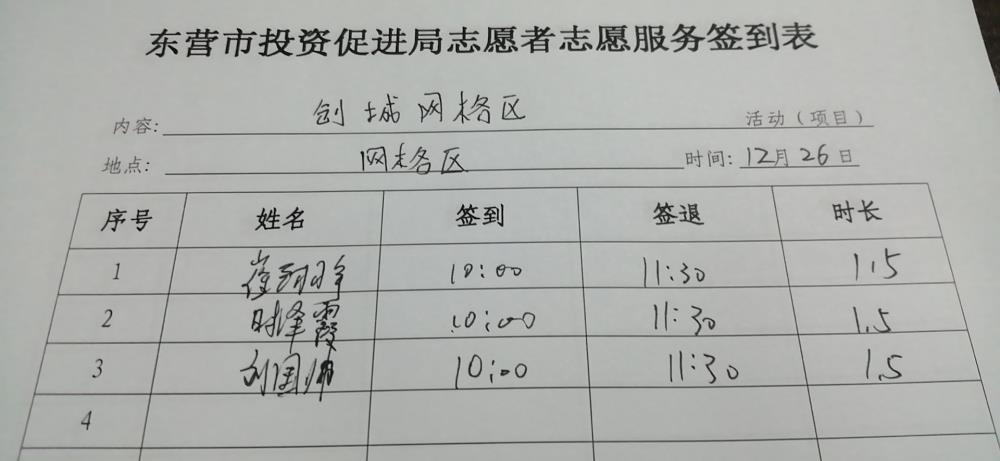 东营市投资促进局志愿者志愿服务签到表
内容: 创城网格区 活动（项目）
地点: 网格区 时间: 12月26日
序号 姓名 签到 签退 时长
1 崔 10:00 11:30 1.5
2 时泽霞 10:00 11:30 1.5
3 刘国帅 10:00 11:30 1.5
4